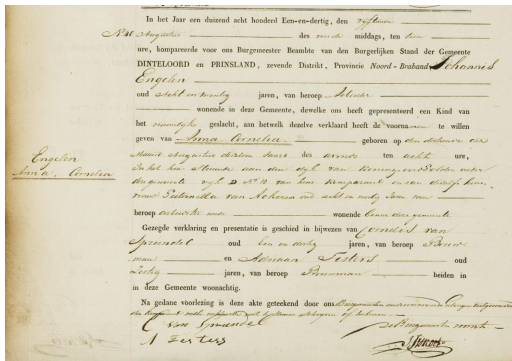 In het Jaar een duizend acht honderd Een-en-dertig, den vijftienden
Augustus des middags, ten tien
ure, kompareerde voor ons Burgemeester Beambte van den Burgerlijken Stand der Gemeente
DINTELOORD en PRINSLAND, zevende Distrikt, Provincie Noord-Braband, Johannis
Engelen
oud acht en twintig jaren, van beroep Arbeider
wonende in deze Gemeente, dewelke ons heeft gepresenteerd een Kind van
het vrouwelijke geslacht, aan hetwelk dezelve verklaard heeft de voornamen te willen
geven van Anna Cornelia geboren op den der
Maand Augustus dezes Jaars des avonds ten acht ure,
in het huis staande aan den dijk van Koningsoord Polder onder
dezen gemeente wijk D No 12 van hem komparant en van deszelfs huis
vrouw Pieternella van oud acht en twintig Jaren van
beroep arbeidster mede wonende binnen deze gemeente
Engelen
Anna, Cornelia
Gezegde verklaring en presentatie is geschied in bijwezen van Cornelis van
Sprundel oud een en dertig jaren, van beroep Bouw
man en Adriaan Testers oud
zestig jaren, van beroep Bouwman beiden in
in deze Gemeente woonachtig.
Na gedane voorlezing is deze akte geteekend door ons Burgemeester en de getuigen
de komparant verklaarde niet te kunnen schrijven
C van Sprundel
De Burgemeester
A Testers